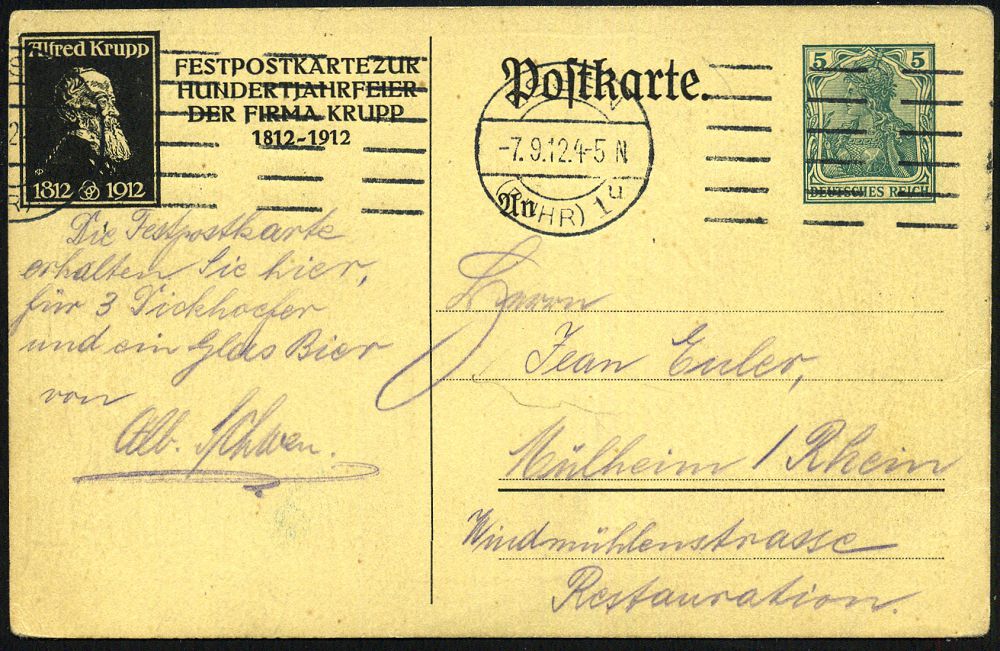 Alfred Krupp
1812 1912
FESTPOSTKARTE ZUR
HUNDERTJAHRFEIER
DER FIRMA KRUPP
1812-1912
Postkarte.
5 5
DEUTSCHES REICH
-7.9.12.4-5 N
(RUHR) 1u
An
Die Festpostkarte
erhalten Sie hier,
für 3 Dickhoefer
und ein Glas Bier
von
Alb.
Herrn
Jean Euler,
Mülheim / Rhein
Windmühlenstrasse
Restauration.